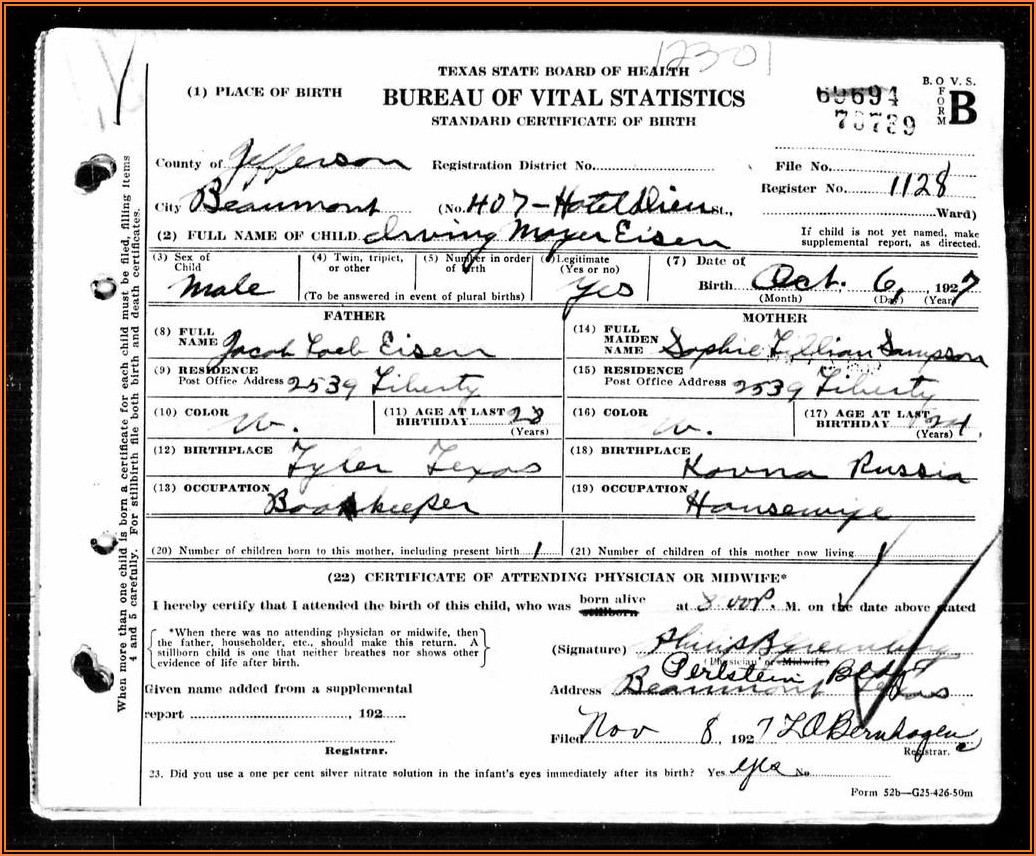 12301
TEXAS STATE BOARD OF HEALTH
(1) PLACE OF BIRTH
BUREAU OF VITAL STATISTICS
STANDARD CERTIFICATE OF BIRTH
69694
70789
B. O. V. S.
FORM B
County of Jefferson Registration District No. File No.
Register No. 1128
City Beaumont (No. 407-Hotel Dieu St., Ward)
(2) FULL NAME OF CHILD Irving Mayer Eisen
If child is not yet named, make
supplemental report, as directed.
(3) Sex of Child Male
(4) Twin, triplet, or other
(5) Number in order of birth
(To be answered in event of plural births)
(6) Legitimate (Yes or no) Yes
(7) Date of Birth Oct. 6, 1927
(Month) (Day) (Year)
FATHER
MOTHER
(8) FULL NAME Jacob Loeb Eisen
(14) FULL MAIDEN NAME Sophie Lillian Sampson
(9) RESIDENCE
Post Office Address 2539 Liberty
(15) RESIDENCE
Post Office Address 2539 Liberty
(10) COLOR W.
(11) AGE AT LAST BIRTHDAY 28 (Years)
(16) COLOR W.
(17) AGE AT LAST BIRTHDAY 24, (Years)
(12) BIRTHPLACE Tyler Texas
(18) BIRTHPLACE Kovna Russia
(13) OCCUPATION Bookkeeper
(19) OCCUPATION Housewife
(20) Number of children born to this mother, including present birth 1
(21) Number of children of this mother now living 1
(22) CERTIFICATE OF ATTENDING PHYSICIAN OR MIDWIFE*
I hereby certify that I attended the birth of this child, who was born alive stillborn at 8 00 P. M. on the date above stated
*When there was no attending physician or midwife, then
the father, householder, etc., should make this return. A
stillborn child is one that neither breathes nor shows other
evidence of life after birth.
(Signature) Philip B Greenberg
(Physician or Midwife)
Perlstein Bldg
Address Beaumont Texas
Given name added from a supplemental
report , 192
Registrar.
Filed Nov 8, 1927 L O Bernhagen
Registrar.
23. Did you use a one per cent silver nitrate solution in the infant's eyes immediately after its birth? Yes yes No
Form 52b—G25-426-50m
When more than one child is born a certificate for each child must be filed, filling items
4 and 5 carefully. For stillbirth file both birth and death certificates.